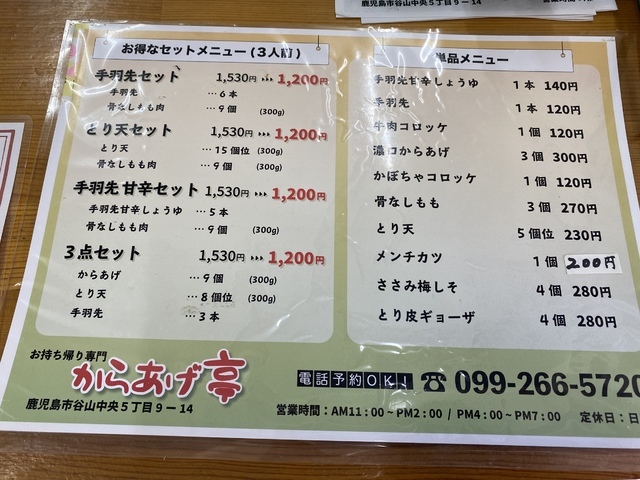 鹿児島市谷山中央5丁目9ー14
お得なセットメニュー(3人前)
手羽先セット 1,530円 ▸▸▸ 1,200円
手羽先 …6本
骨なしもも肉 …9個 (300g)
とり天セット 1,530円 ▸▸▸ 1,200円
とり天 …15個位 (300g)
骨なしもも肉 …9個 (300g)
手羽先甘辛セット 1,530円 ▸▸▸ 1,200円
手羽先甘辛しょうゆ …5本
骨なしもも肉 …9個 (300g)
3点セット 1,530円 ▸▸▸ 1,200円
からあげ …9個 (300g)
とり天 …8個位 (300g)
手羽先 …3本
単品メニュー
手羽先甘辛しょうゆ 1本 140円
手羽先 1本 120円
牛肉コロッケ 1個 120円
濃口からあげ 3個 300円
かぼちゃコロッケ 1個 120円
骨なしもも 3個 270円
とり天 5個位 230円
メンチカツ 1個 200円
ささみ梅しそ 4個 280円
とり皮ギョーザ 4個 280円
お持ち帰り専門
からあげ亭
鹿児島市谷山中央5丁目9ー14
電話予約OK! ☎ 099-266-5720
営業時間:AM11:00~PM2:00 / PM4:00~PM7:00 定休日:日